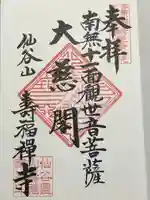 奉拝
南無十一面観世音菩薩
大慈閣
仙谷山
寿福禅寺